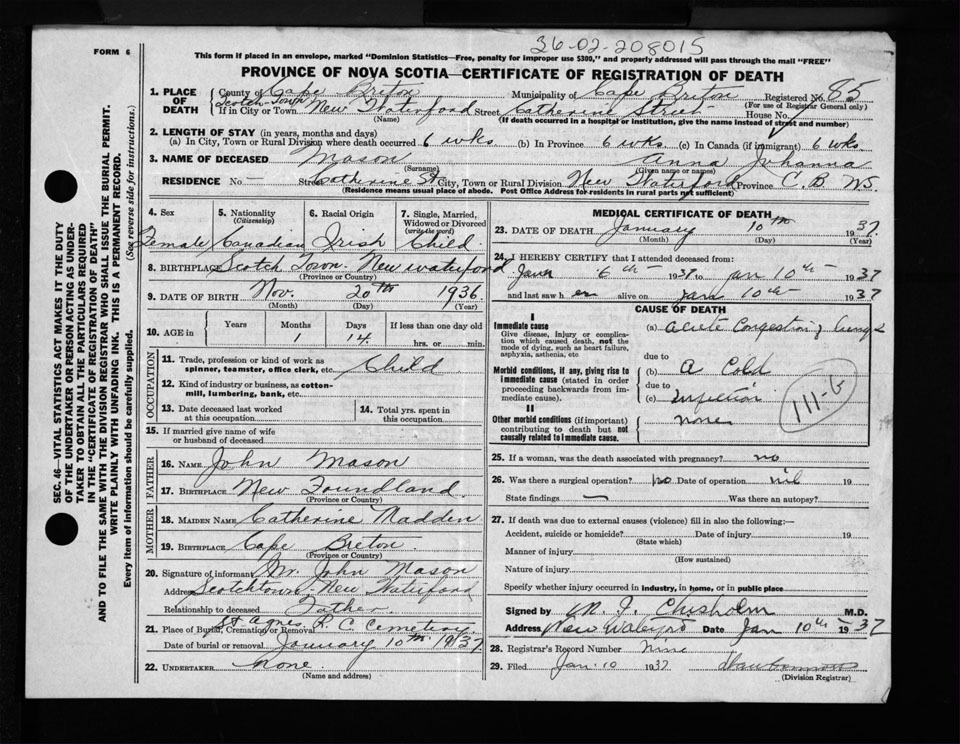 36-02-208015
FORM 6
This form if placed in an envelope, marked "Dominion Statistics—Free, penalty for improper use $300," and properly addressed will pass through the mail "FREE"
PROVINCE OF NOVA SCOTIA—CERTIFICATE OF REGISTRATION OF DEATH
1. PLACE OF DEATH
County of Cape Briton Municipality of Cape Briton Registered No. 85
(For use of Registrar General only)
Scotch-Town
If in City or Town New Waterford Street Catherine Street House No.
(Name) (If death occurred in a hospital or institution, give the name instead of street and number)
2. LENGTH OF STAY (in years, months and days)
(a) In City, Town or Rural Division where death occurred 6 wks (b) In Province 6 wks (c) In Canada (if immigrant) 6 wks
3. NAME OF DECEASED Mason Anna Johanna
(Surname) (Given name or names)
RESIDENCE No — Street Catherine St City, Town or Rural Division New Waterford Province C. B. N.S.
(Residence means usual place of abode. Post Office Address for residents in rural parts not sufficient)
4. Sex Female
5. Nationality (Citizenship) Canadian
6. Racial Origin Irish
7. Single, Married, Widowed or Divorced (write the word) Child
8. BIRTHPLACE Scotch Town. New waterford
(Province or Country)
9. DATE OF BIRTH Nov. 20th 1936
(Month) (Day) (Year)
10. AGE in Years Months 1 Days 14 If less than one day old hrs. or min.
OCCUPATION
11. Trade, profession or kind of work as spinner, teamster, office clerk, etc. Child
12. Kind of industry or business, as cotton-mill, lumbering, bank, etc.
13. Date deceased last worked at this occupation
14. Total yrs. spent in this occupation
15. If married give name of wife or husband of deceased
FATHER
16. NAME John Mason
17. BIRTHPLACE New Foundland
(Province or Country)
MOTHER
18. MAIDEN NAME Catherine Madden
19. BIRTHPLACE Cape Breton
(Province or Country)
20. Signature of informant Mr. John Mason
Address Scotchtown, New Waterford
Relationship to deceased Father.
21. Place of Burial, Cremation or Removal St Agnes R. C. Cemetery
Date of burial or removal January 10th 1937
22. UNDERTAKER None.
(Name and address)
MEDICAL CERTIFICATE OF DEATH
23. DATE OF DEATH January 10th 1937
(Month) (Day) (Year)
24. I HEREBY CERTIFY that I attended deceased from:
Jan 6th 1937 to Jan 10th 1937
and last saw her alive on Jan 10th 1937
CAUSE OF DEATH
I
Immediate cause
Give disease, Injury or complication which caused death, not the mode of dying, such as heart failure, asphyxia, asthenia, etc
(a) Acute Congestion of lungs
due to
Morbid conditions, if any, giving rise to immediate cause (stated in order proceeding backwards from immediate cause).
(b) A Cold
due to
(c) Infection
II
Other morbid conditions (if important) contributing to death but not causally related to immediate cause.
none
25. If a woman, was the death associated with pregnancy? no
26. Was there a surgical operation? No Date of operation nil 19
State findings — Was there an autopsy?
27. If death was due to external causes (violence) fill in also the following:—
Accident, suicide or homicide? Date of injury 19
(State which)
Manner of injury
(How sustained)
Nature of injury
Specify whether injury occurred in industry, in home, or in public place
Signed by M. J. Chisholm M.D.
Address New Waterford Date Jan 10th 1937
28. Registrar's Record Number Nine
29. Filed Jan. 10 1937
(Division Registrar)
SEC. 46—VITAL STATISTICS ACT MAKES IT THE DUTY
OF THE UNDERTAKER OR PERSON ACTING AS UNDER-
TAKER TO OBTAIN ALL THE PARTICULARS REQUIRED
IN THE "CERTIFICATE OF REGISTRATION OF DEATH"
AND TO FILE THE SAME WITH THE DIVISION REGISTRAR WHO SHALL ISSUE THE BURIAL PERMIT.
WRITE PLAINLY WITH UNFADING INK. THIS IS A PERMANENT RECORD.
Every item of information should be carefully supplied. (See reverse side for instructions.)